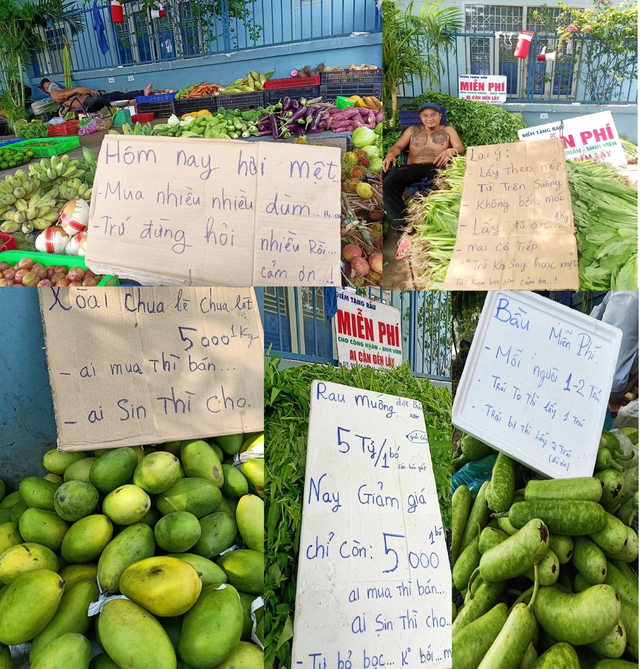 Hôm nay hơi mệt
- Mua nhiều nhiều dùm...
- Trứ đừng hỏi nhiều Rồi..
cảm ơn..!
MIỄN PHÍ
AI CẦN ĐẾN LẤY
ĐIỂM TẶNG RAU
ỄN PHÍ
NHÂN - SINH VIÊN
ĐẾN LẤY
Lưu ý:
Lấy Theo nếp
Từ Trên Xuống
Không bới móc
- Lấy đủ ăn... 1 Kg
mai có Tiếp
Xoài chua lè chua lét
5000 1 Kg
- ai mua Thì bán...
- ai Sin Thì cho...
ĐIỂM TẶNG RAU
MIỄN PHÍ
CHO CÔNG NHÂN - SINH VIÊN
AI CẦN ĐẾN LẤY
Rau muống
5 Tỷ/1 bó
Nay Giảm giá
chỉ còn: 5000 1 bó
ai mua thì bán...
ai Sin Thì cho...
- Tự bỏ bọc... K° bới...m
Bầu Miễn Phí
- Mỗi người 1-2 Trái
- Trái To Thì Lấy 1 Trái
- Trái bé Thì Lấy 2 Trái